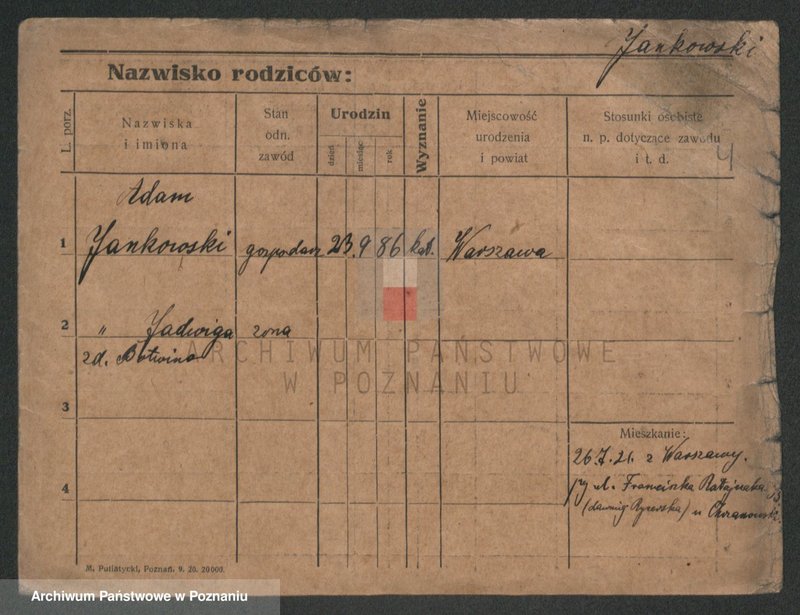 Jankowski
Nazwisko rodziców:
L. porz.
Nazwiska
i imiona
Stan
odn.
zawód
Urodzin
dzień
miesiąc
rok
Wyznanie
Miejscowość
urodzenia
i powiat
Stosunki osobiste
n. p. dotyczące zawodu
i t. d.
4
Adam
1 Jankowski gospodarz 23. 9 86 kat. Warszawa
2 " Jadwiga żona
zd. Botwina
ARCHIWUM PAŃSTWOWE
W POZNANIU
3
Mieszkanie:
26.7.21. z Warszawy.
4
ul. Franciszka Ratajczaka
(dawniej Rycerska) u
M. Putiatycki, Poznań. 9. 20. 20000.
Archiwum Państwowe w Poznaniu